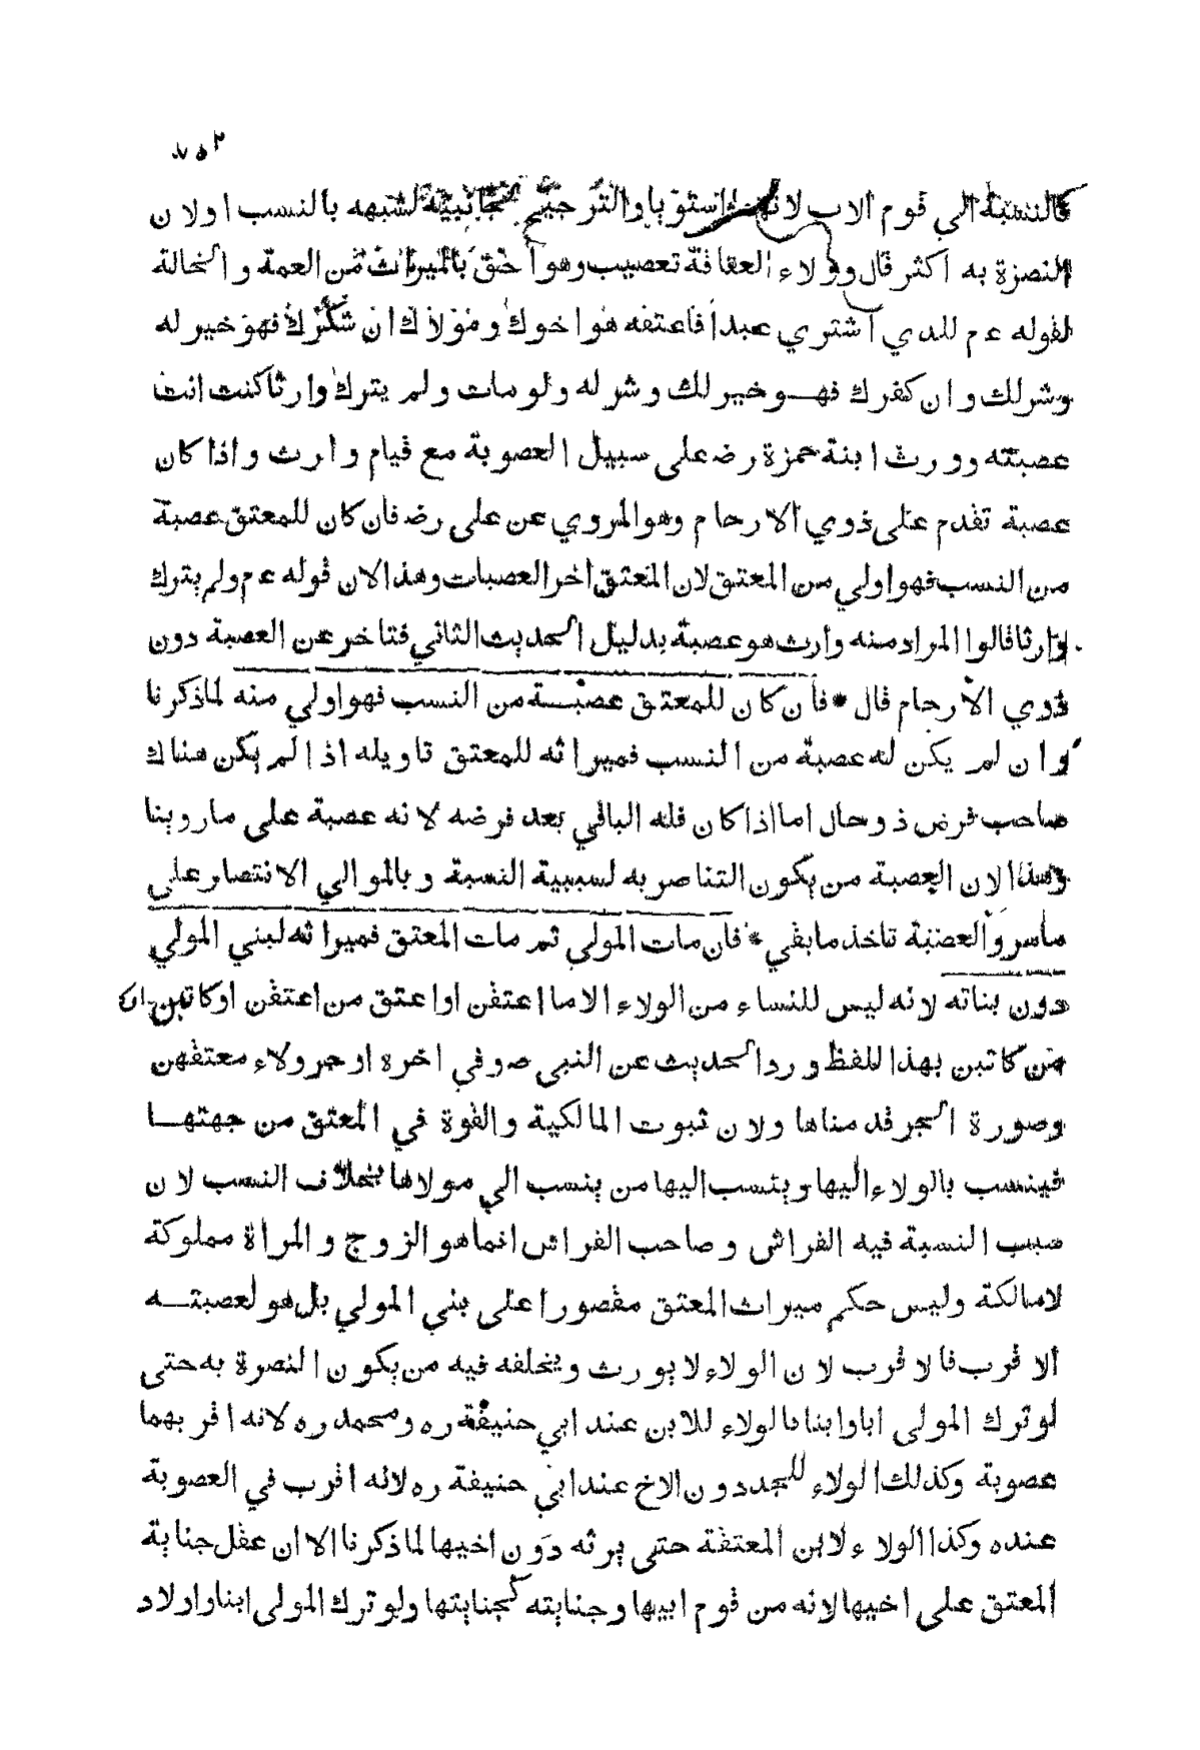 ٧٥٢
كالنسبة الي قوم الاب لانهما استويا والترجيح لجانبية لشبهه بالنسب اولان
النصرة به اكثر قال وولاء العقافة تعصيب وهو احق بالميراث من العمة والخالة
لقوله عم للذي اشتري عبدا فاعتقه هو اخوك ومولاك ان شكرك فهو خير له
وشر لك وان كفرك فهو خير لك وشر له ولو مات ولم يترك وارثا كنت انت
عصبته وورث ابنة حمزة رضـ على سبيل العصوبة مع قيام وارث واذا كان
عصبة تقدم على ذوي الارحام وهو المروي عن على رضـ فان كان للمعتق عصبة
من النسب فهو اولي من المعتق لان المعتق اخر العصبات وهذا لان قوله عم ولم يترك
وارثا قالوا المراد منه وارث هو عصبة بدليل الحديث الثاني فتاخر عن العصبة دون
ذوي الارحام قال * فان كان للمعتق عصبة من النسب فهو اولي منه لما ذكرنا
وان لم يكن له عصبة من النسب فميراثه للمعتق تاويله اذا لم يكن هناك
صاحب فرض ذو حال اما اذا كان فله الباقي بعد فرضه لانه عصبة على ما روينا
وهذا لان العصبة من يكون التناصر به لسببية النسبة وبالموالي الانتصار على
ما سر والعصبة تاخذ ما بقي * فان مات المولي ثم مات المعتق فميراثه لبني المولي
دون بناته لانه ليس للنساء من الولاء الا ما اعتقن او اعتق من اعتقن او كاتبن او
من كاتبن بهذا اللفظ ورد الحديث عن النبي صـ وفي اخره او جر ولاء معتقهن
وصورة الجر قد مناها ولان ثبوت المالكية والقوة في المعتق من جهتها
فينسب بالولاء اليها وينسب اليها من ينسب الي مولاها بخلاف النسب لان
سبب النسبة فيه الفراش وصاحب الفراش انما هو الزوج والمراة مملوكة
لا مالكة وليس حكم ميراث المعتق مقصورا على بني المولي بل هو لعصبته
الاقرب فالاقرب لان الولاء لا يورث ويخلفه فيه من يكون النصرة به حتى
لو ترك المولى ابا وابنا فالولاء للابن عند ابي حنيفة ره ومحمد ره لانه اقر بهما
عصوبة وكذلك الولاء للجد دون الاخ عند ابي حنيفة ره لانه اقرب في العصوبة
عنده وكذا الولاء لابن المعتقة حتى يرثه دون اخيها لما ذكرنا الا ان عقل جناية
المعتق على اخيها لانه من قوم ابيها وجنايته كجنايتها ولو ترك المولى ابنا واولاد